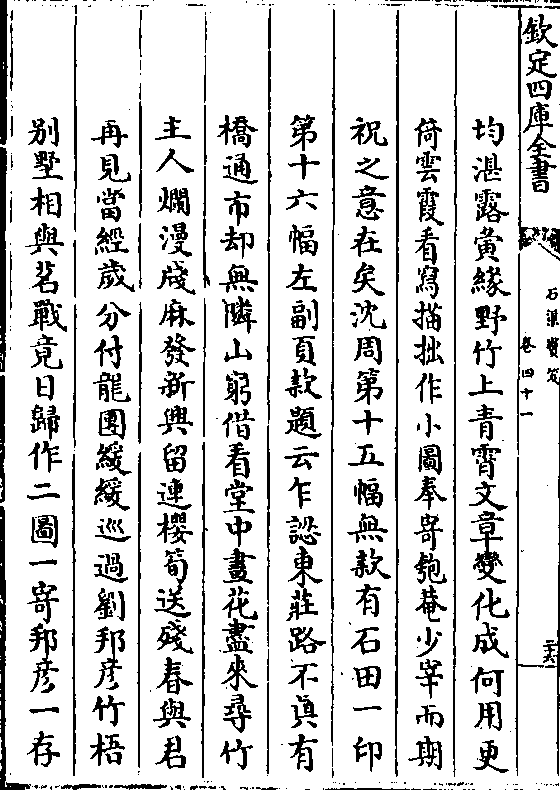 欽定四庫全書
石渠寶笈
卷四十一
二十六
均湛露黄緣野竹上青霄文章變化成何用更
倚雲霞看寫描拙作小圖奉寄匏菴少宰而期
祝之意在矣沈周第十五幅無款有石田一印
第十六幅左副頁款題云乍認東莊路不真有
橋通市却無隣山窮借看堂中畫花盡來尋竹
主人爛漫牋麻發新興留連櫻筍送殘春與君
再見當經歲分付龍團緩緩巡過劉邦彦竹梧
别墅相與茗戰竟日歸作二圖一寄邦彦一存